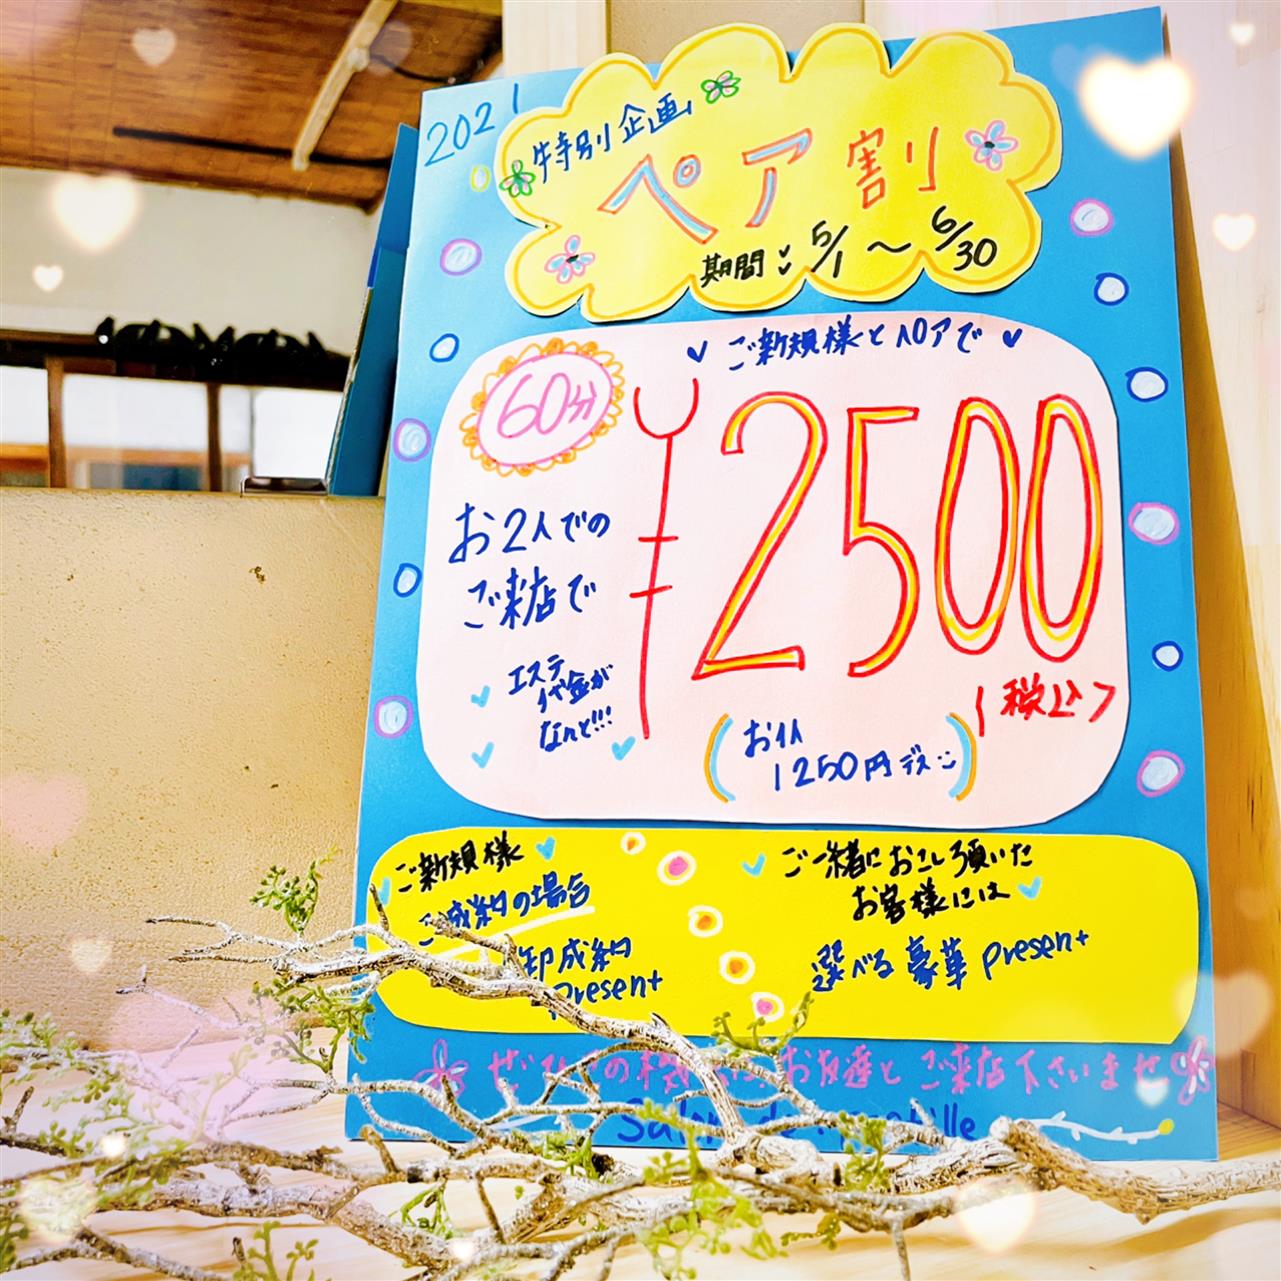 2021
特別企画
ペア割
期間：5/1～6/30
ご新規様とペアで
60分
¥2500
(税込)
お2人での
ご来店で
エステ
代金が
なんと!!!
(お1人
1250円デス)
ご新規様
ご成約の場合
御成約
present
ご一緒にお越し頂いた
お客様には
選べる豪華present
お友達とご来店下さいませ
Salon